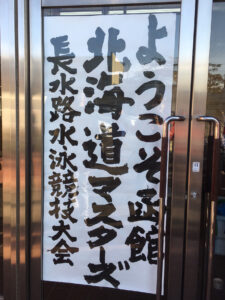 ようこそ函館
北海道マスターズ
長水路水泳競技大会